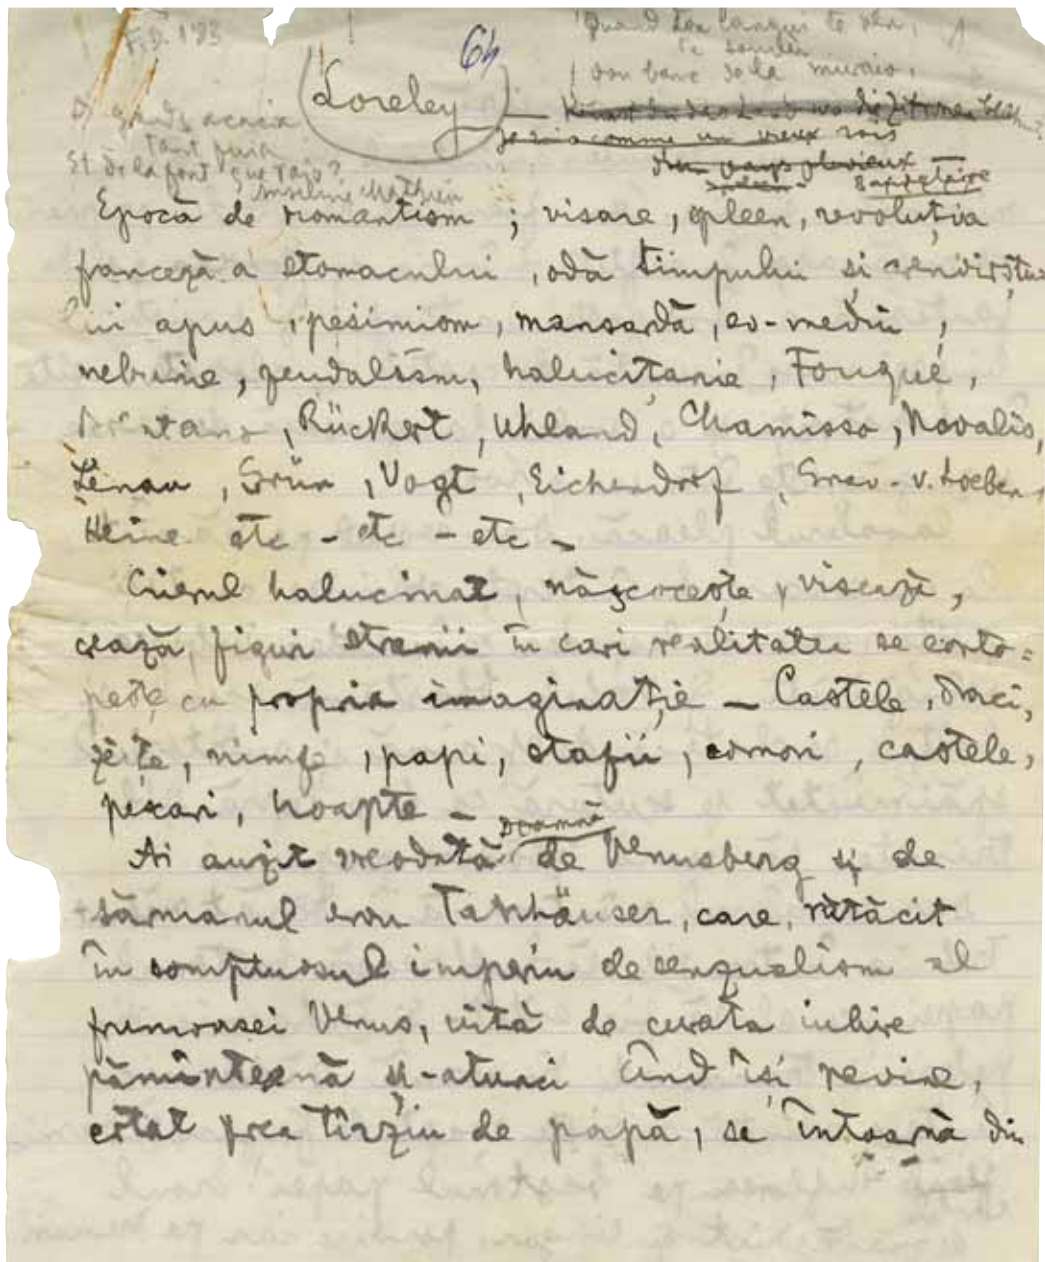 F.D. 183
64
Loreley
Quand
don banc de la
Je suis comme un vieux rois
du pays pluvieux
Baudelaire
grands acacia
tant
Et de la font que rajo?
Anselme Mathieu
Epocă de romantism ; visare, spleen, revoluția
franceză a stomacului, odă timpului și
lui apus, pesimism, mansardă, ev-mediu,
nebunie, feudalism, halucitanie, Fouqué,
Brentano, Rückert, Uhland, Chamisso, Novalis,
Lenau, Grün, Vogt, Eichendorf, Grav. v. Loeben,
Heine etc - etc - etc -
Crierul halucinat, născocește, visează,
crează, figuri stranii în cari realitatea se conto=
pește cu propria imaginație - Castele, draci,
zeițe, nimfe, papi, stafii, comori, castele,
pescari, noapte -
Ai auzit vreodată doamnă de Venusberg și de
sărmanul erou Tannhäuser, care, rătăcit
în somptuosul imperiu de senzualism al
frumoasei Venus, uită de curata iubire
pămînteană și-atunci cînd își revine,
ertat prea tîrziu de papă, se întoarnă din